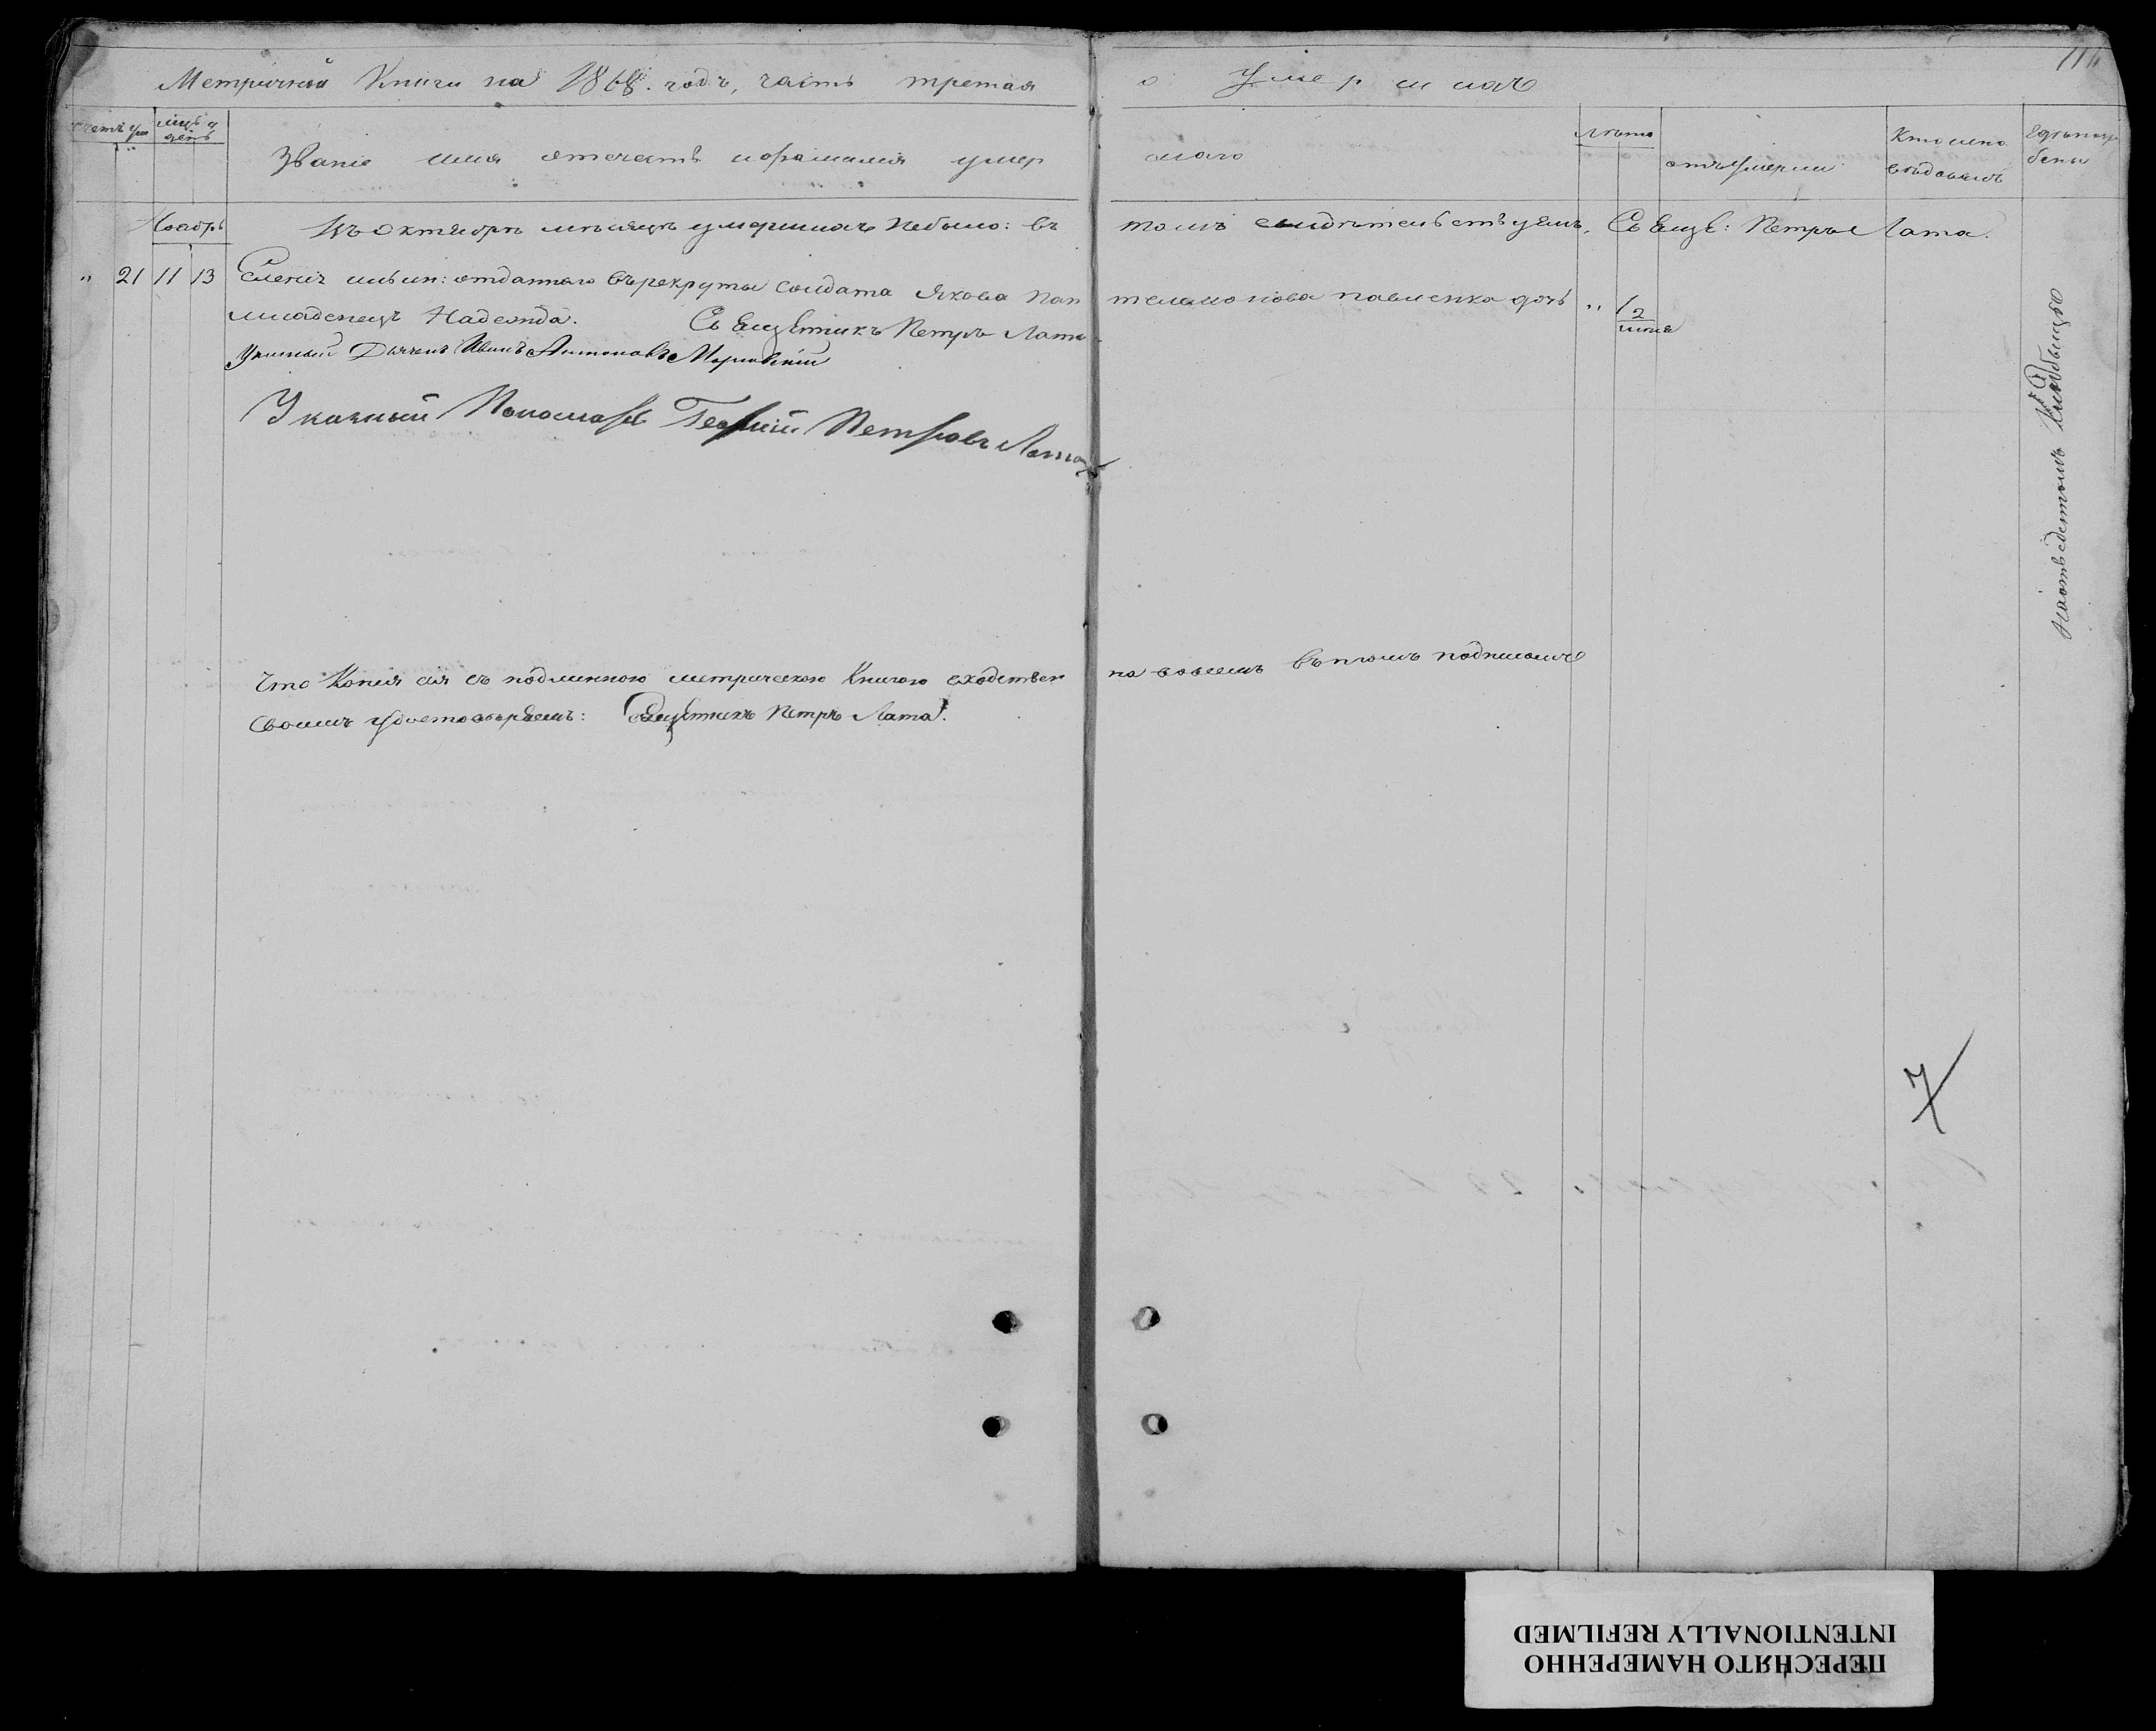 116
Метричной Книги на 1868. годъ, часть третая о Умершихъ
Счетъ Ум
мцъ и день
Званіе имя отечество и фамилія умершаго
Лѣта
отъ чего умерли
Кто исповѣдывалъ
Гдѣ погребены
Ноябрь
Въ октябрѣ мѣсяцѣ умершихъ небыло: въ томъ свидѣтельствуемъ. Свящ: Петръ Лата.
" 21 11 13 отданнаго въ рекруты солдата Якова Пантелимонова павленка дочь " 1/2
младенецъ Надежда. Священникъ Петръ Лата
Указный Дьячекъ Иванъ Антоновъ
Указный Пономарь Георгій Петровъ Лата
Что Копія сія съ подлинною метрическою Книгою сходственна во всемъ въ томъ подписомъ
своимъ удостовѣряемъ: Священникъ Петръ Лата.
7
ПЕРЕСНЯТО НАМЕРЕННО
INTENTIONALLY REFILMED